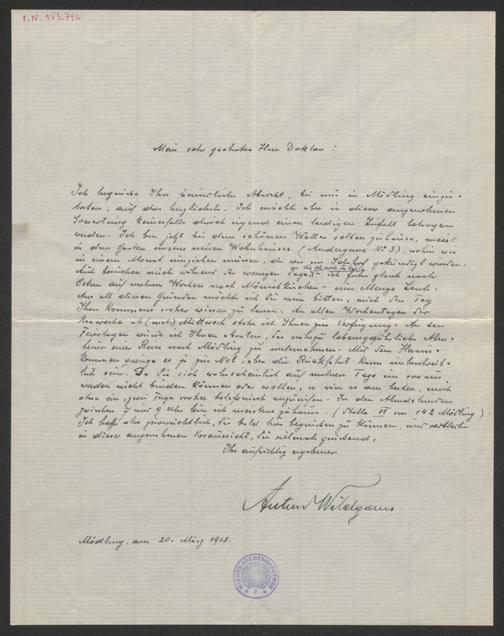 I.N. 153.796
Mein sehr geehrter Herr Doktor!
Ich begrüsse Ihre freundliche Absicht, bei mir in Mödling einzu-
kehren, auf das herzlichste. Ich möchte aber in dieser angenehmen
Erwartung keinesfalls durch irgend einen leidigen Zufall betrogen
werden. Ich bin jetzt bei dem schönen Wetter selten zuhause, meist
in dem Garten neuen Wohnhauses (Andergasse No 3), wohin wir
in einem Monat umziehen müssen, da wir im gekündigt wurden.
Auch besuchen mich während der wenigen Tage, – ich fahre gleich nach
Ostern auf mehrere Wochen nach Mönichkirchen – eine Menge Leute.
Aus all diesen Gründen möchte ich Sie nun bitten, mich den Tag
Ihres Kommens vorher wissen zu lassen. An allen Wochentagen der
Karwoche ab Mittwoch stehe ich Ihnen zur Verfügung. An den
Feiertagen würde ich Ihnen abraten, das nahezu lebensgefährliche Aben-
teuer einer Reise nach Mödling zu unternehmen. Mit dem Hinaus-
kommen ginge es ja zur Not, aber die Rückfahrt kann unbeschreib-
lich sein. Da Sie sich wahrscheinlich auf mehrere Tage im voraus
werden nicht binden können oder wollen, so wäre es am besten, mich
etwa ein, zwei Tage vorher telefonisch anzurufen. In den Abendstunden
zwischen 7 und 9 Uhr bin ich meistens zuhause. (Stelle VI von 142 Mödling)
Ich hoffe also zuversichtlich, Sie bald hier begrüßen zu können, und verbleibe
in dieser angenehmen Voraussicht, Sie vielmals grüßend,
Ihr aufrichtig ergebener
Anton Wildgans
Mödling, am 20. März 1918.